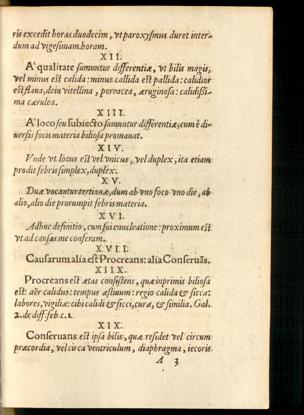 ris excedit horas duodecim, vt paroxysmus duret inter-
dum ad vigesimam horam.
XII.
A' qualitate sumuntur differentiæ, vt bilis magis,
vel minus est calida: minus callida est pallida: calidior
est flaua, dein vitellina, porracea, æruginosa: calidissi-
ma cærulea.
XIII.
A' loco seu subiecto sumuntur differentiæ, cum è di-
uersis focis materia biliosa promanat.
XIV.
Vnde vt locus est vel vnicus, vel duplex, ita etiam
prodit febris simplex, duplex.
XV.
Duæ vocantur tertianæ, dum ab vno foco vno die, ab
alio, alio die prorumpit febris materia.
XVI.
Adhuc definitio, cum sui enucleatione: proximum est
vt ad causas me conferam.
XVII.
Causarum alia est Procreans: alia Conseruãs.
XIIX.
Procreans est ætas consistens, quæ inprimis biliosa
est: aër calidus: tempus æstiuum: regio calida & sicca:
labores, vigiliæ: cibi calidi & sicci, curæ, & similia. Gal.
2. de diff. feb. c. 1.
XIX.
Conseruans est ipsa bilis, quæ residet vel circum
præcordia, vel circa ventriculum, diaphragma, iecoris
A 3